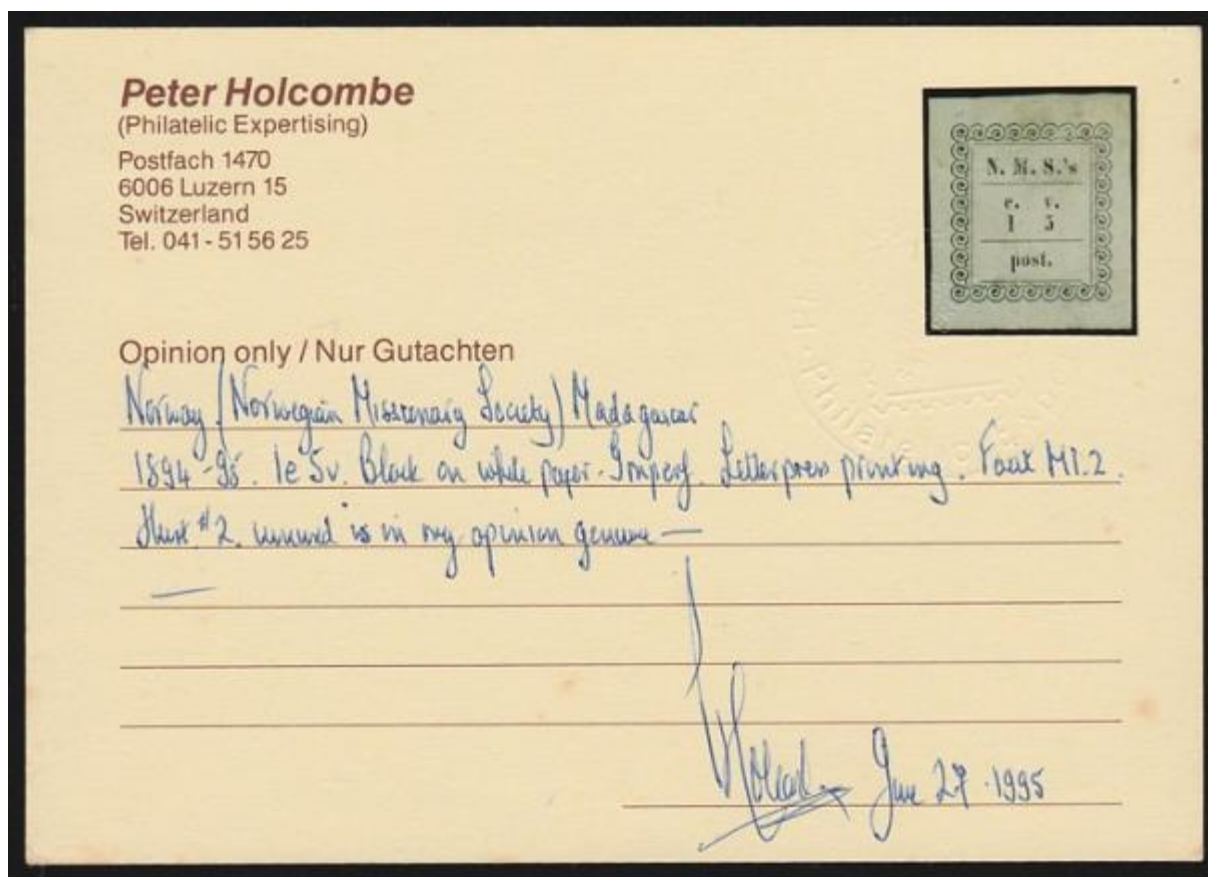 Peter Holcombe
(Philatelic Expertising)
Postfach 1470
6006 Luzern 15
Switzerland
Tel. 041 - 51 56 25
N. M. S.'s
e. v.
1 5
post.
Opinion only / Nur Gutachten
Norway (Norwegian Missionary Society) Madagascar
1894-95. 1e 5v. Black on white paper - Imperf. Letterpress printing. Facit M1.2.
#2. unused is in my opinion genuine —
June 27 · 1995